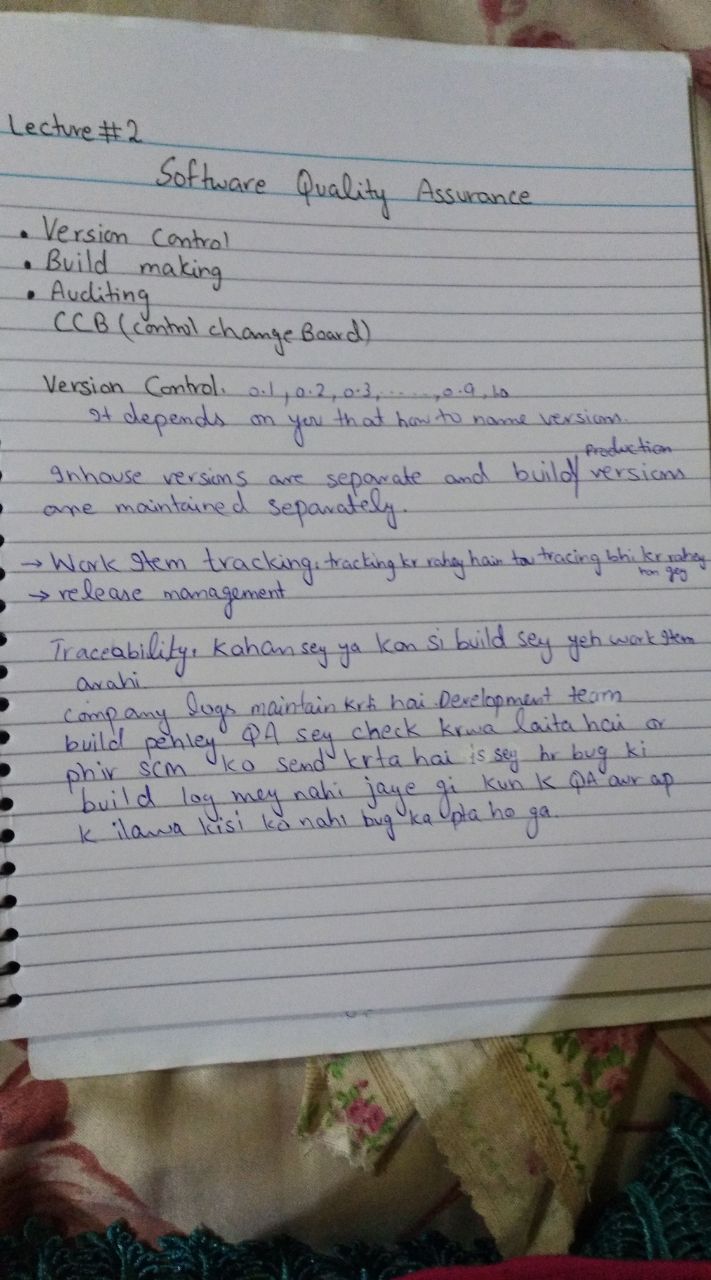 Lecture #2
Software Quality Assurance
• Version Control
• Build making
• Auditing
CCB (control change Board)
Version Control. 0.1, 0.2, 0.3, ......, 0.9, 1.0
It depends on you that how to name versions.
Production
Inhouse versions are separate and build/ versions
are maintained separately.
→ Work Item tracking. tracking kr rahey hain tou tracing bhi kr rahey
hon gey
→ release management
Traceability. Kahan sey ya kon si build sey yeh work Item
arahi
company logs maintain krti hai. Development team
build pehley QA sey check krwa laita hai or
phir SCM ko send krta hai is sey hr bug ki
build log mey nahi jaye gi kun k QA aur ap
k ilawa kisi ko nahi bug ka pta ho ga.